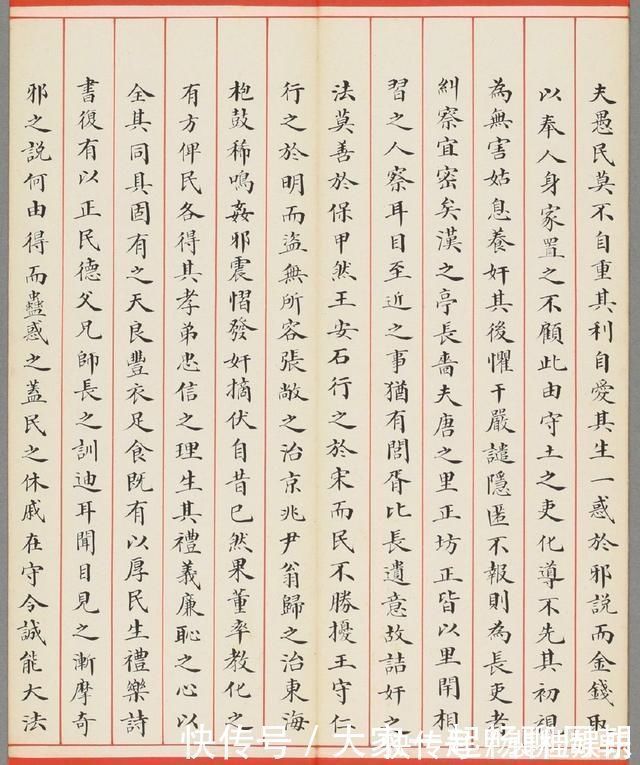 夫愚民莫不自重其利自愛其生一惑於邪說而金錢取
以奉人身家置之不顧此由守土之吏化導不先其初視
為無害姑息養奸其後懼干嚴譴隱匿不報則為長吏者
糾察宜密矣漢之亭長嗇夫唐之里正坊正皆以里閈相
習之人察耳目至近之事猶有閭胥比長遺意故詰奸之
法莫善於保甲然王安石行之於宋而民不勝擾王守仁
行之於明而盜無所容張敞之治京兆尹翁歸之治東海
枹鼓稀鳴姦邪震慴發奸摘伏自昔已然果董率教化之
有方俾民各得其孝弟忠信之理生其禮義廉恥之心以
全其同具固有之天良豐衣足食既有以厚民生禮樂詩
書復有以正民德父兄師長之訓迪耳聞目見之漸摩奇
邪之說何由得而蠱惑之蓋民之休戚在守令誠能大法
快传号 / 大家